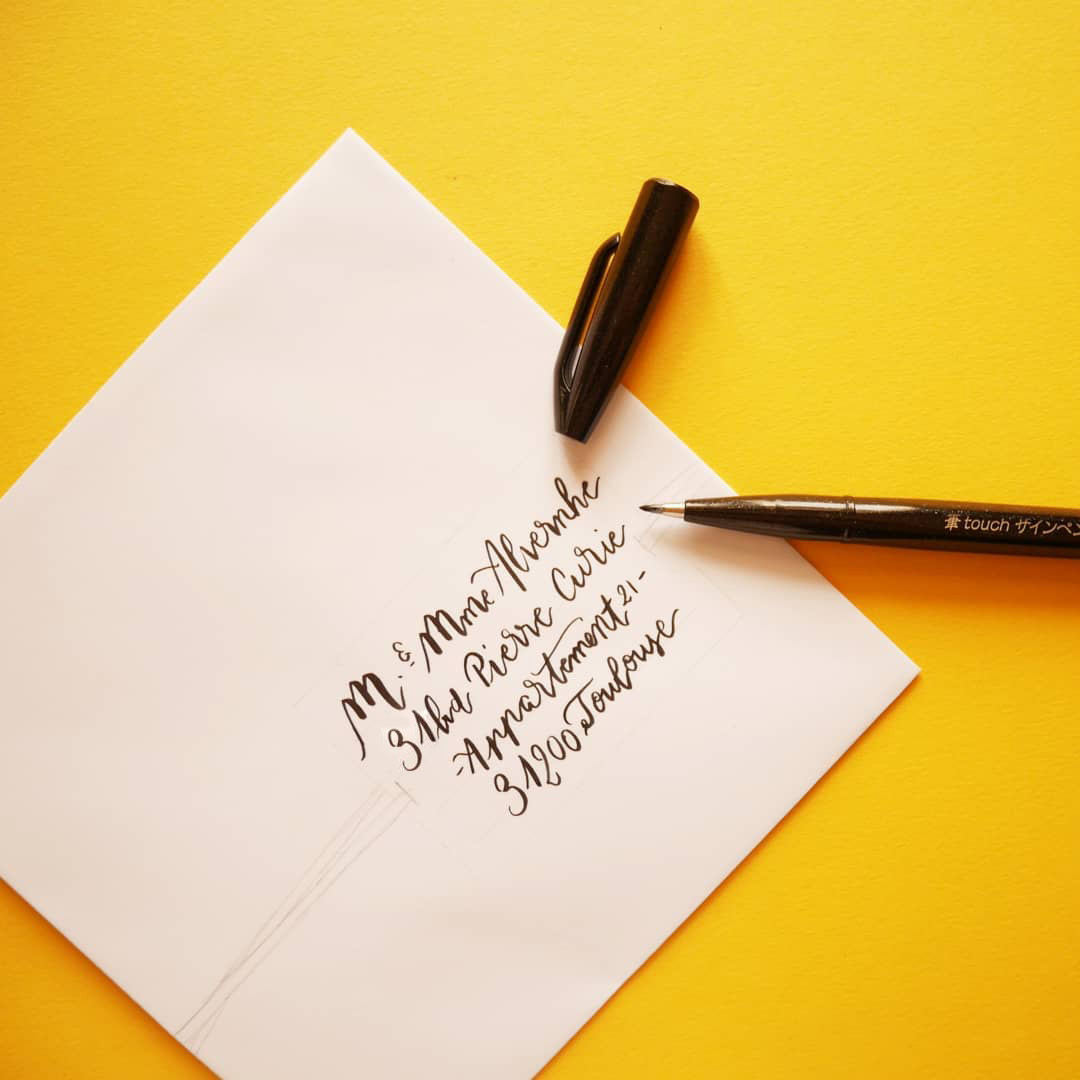 M. & Mme Alvernhe
31bd Pierre Curie
-Appartement 21-
31200 Toulouse
筆touch サインペン